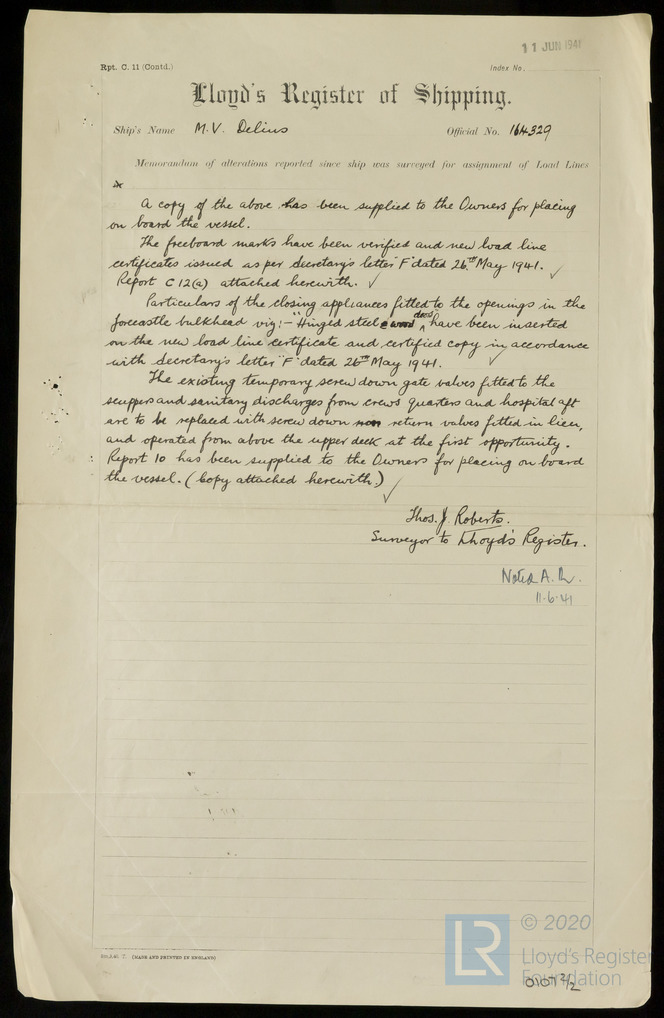 11 JUN 1941
Rpt. C. 11 (Contd.)
Index No.
Lloyd's Register of Shipping.
Ship's Name M.V. Delius Official No. 164329
Memorandum of alterations reported since ship was surveyed for assignment of Load Lines
A copy of the above has been supplied to the Owners for placing
on board the vessel.
The freeboard marks have been verified and new load line
certificates issued as per Secretary's letter "F" dated 26th May 1941. ✓
Report C 12(a) attached herewith. ✓
Particulars of the closing appliances fitted to the openings in the
forecastle bulkhead viz:- "Hinged steel doors" have been inserted
on the new load line certificate and certified copy in accordance
with Secretary's letter "F" dated 26th May 1941. ✓
The existing temporary screw down gate valves fitted to the
scuppers and sanitary discharges from crews quarters and hospital aft
are to be replaced with screw down non return valves fitted in lieu,
and operated from above the upper deck at the first opportunity.
Report 10 has been supplied to the Owners for placing on board
the vessel. (Copy attached herewith.) ✓
Thos. J. Roberts.
Surveyor to Lloyd's Register.
Noted A.
11·6·41
(MADE AND PRINTED IN ENGLAND)
LR
© 2020
Lloyd's Register
Foundation
0107 2/2